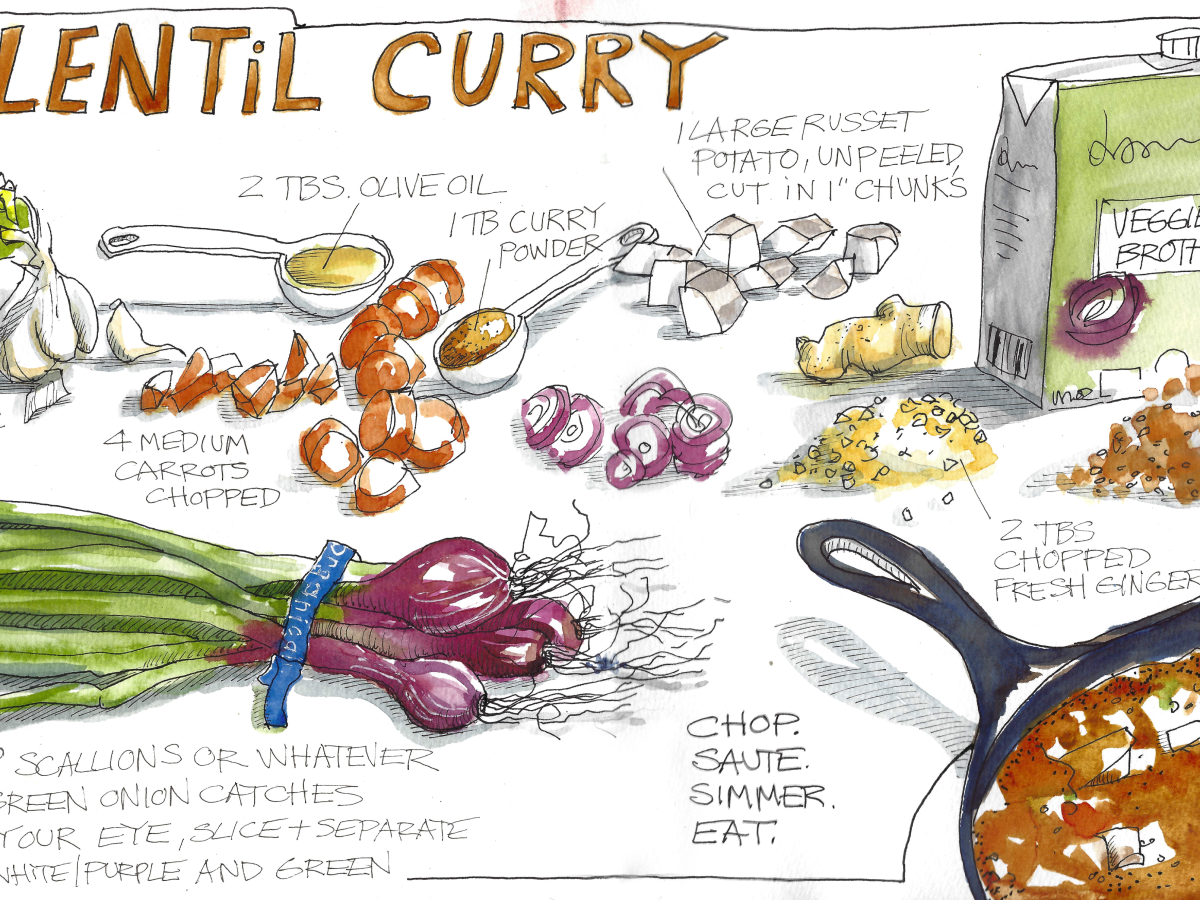 LENTIL CURRY
2 TBS. OLIVE OIL
1 TB CURRY
POWDER
1 LARGE RUSSET
POTATO, UNPEELED,
CUT IN 1" CHUNKS
VEGGIE
BROTH
4 MEDIUM
CARROTS
CHOPPED
2 TBS
CHOPPED
FRESH GINGER
SCALLIONS OR WHATEVER
GREEN ONION CATCHES
YOUR EYE, SLICE + SEPARATE
WHITE/PURPLE AND GREEN
CHOP.
SAUTE.
SIMMER.
EAT.